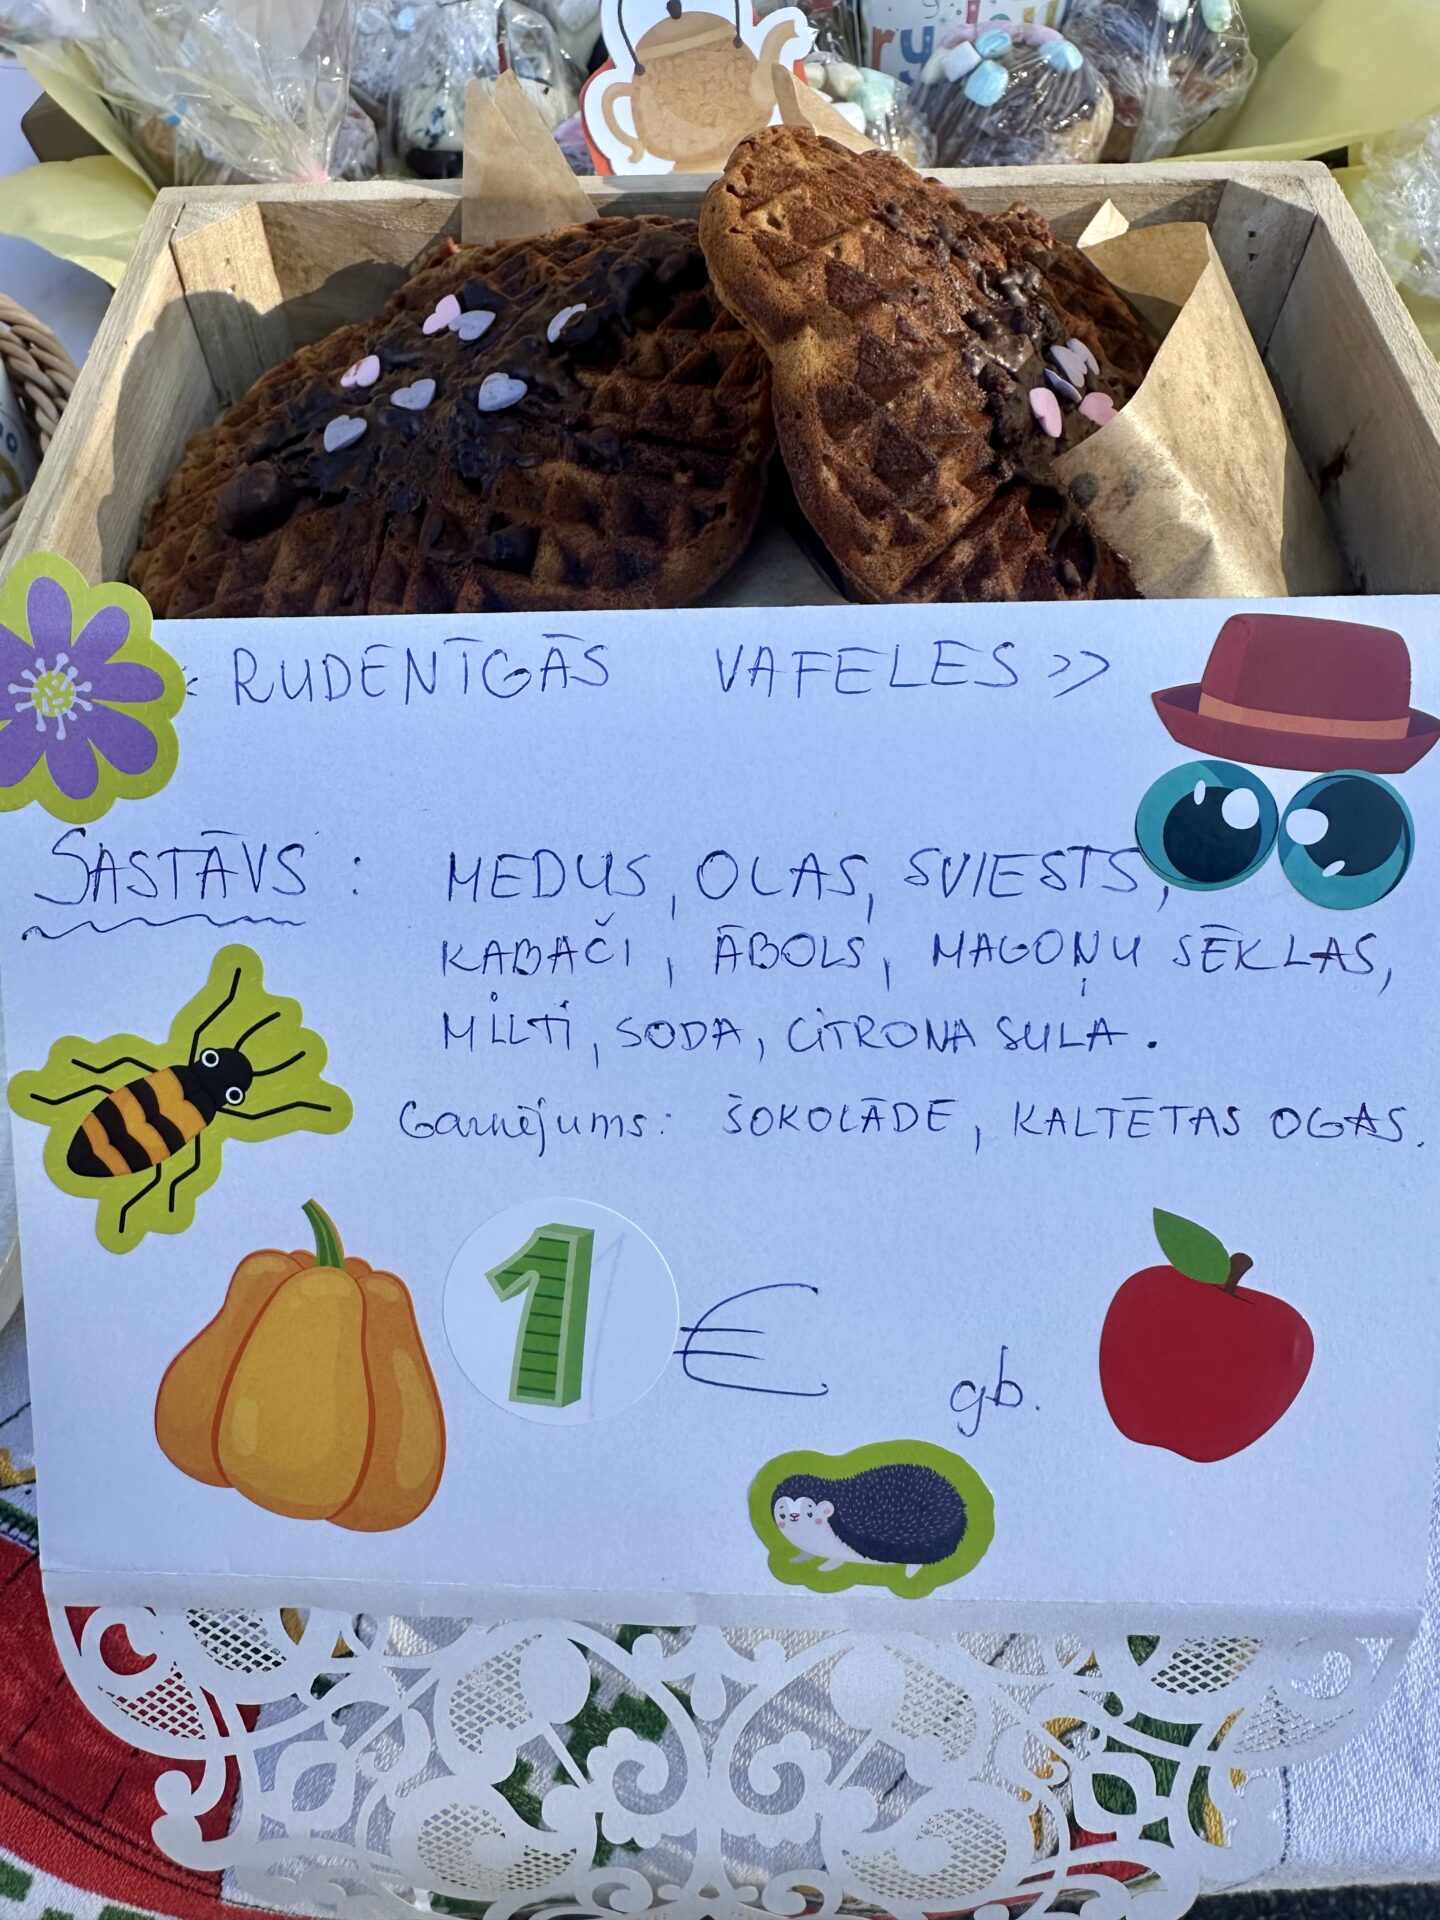 « RUDENĪGĀS VAFELES »
SASTĀVS : MEDUS, OLAS, SVIESTS,
KABAČI, ĀBOLS, MAGOŅU SĒKLAS,
MILTI, SODA, CITRONA SULA.
Garnējums: ŠOKOLĀDE, KALTĒTAS OGAS.
1 € gb.